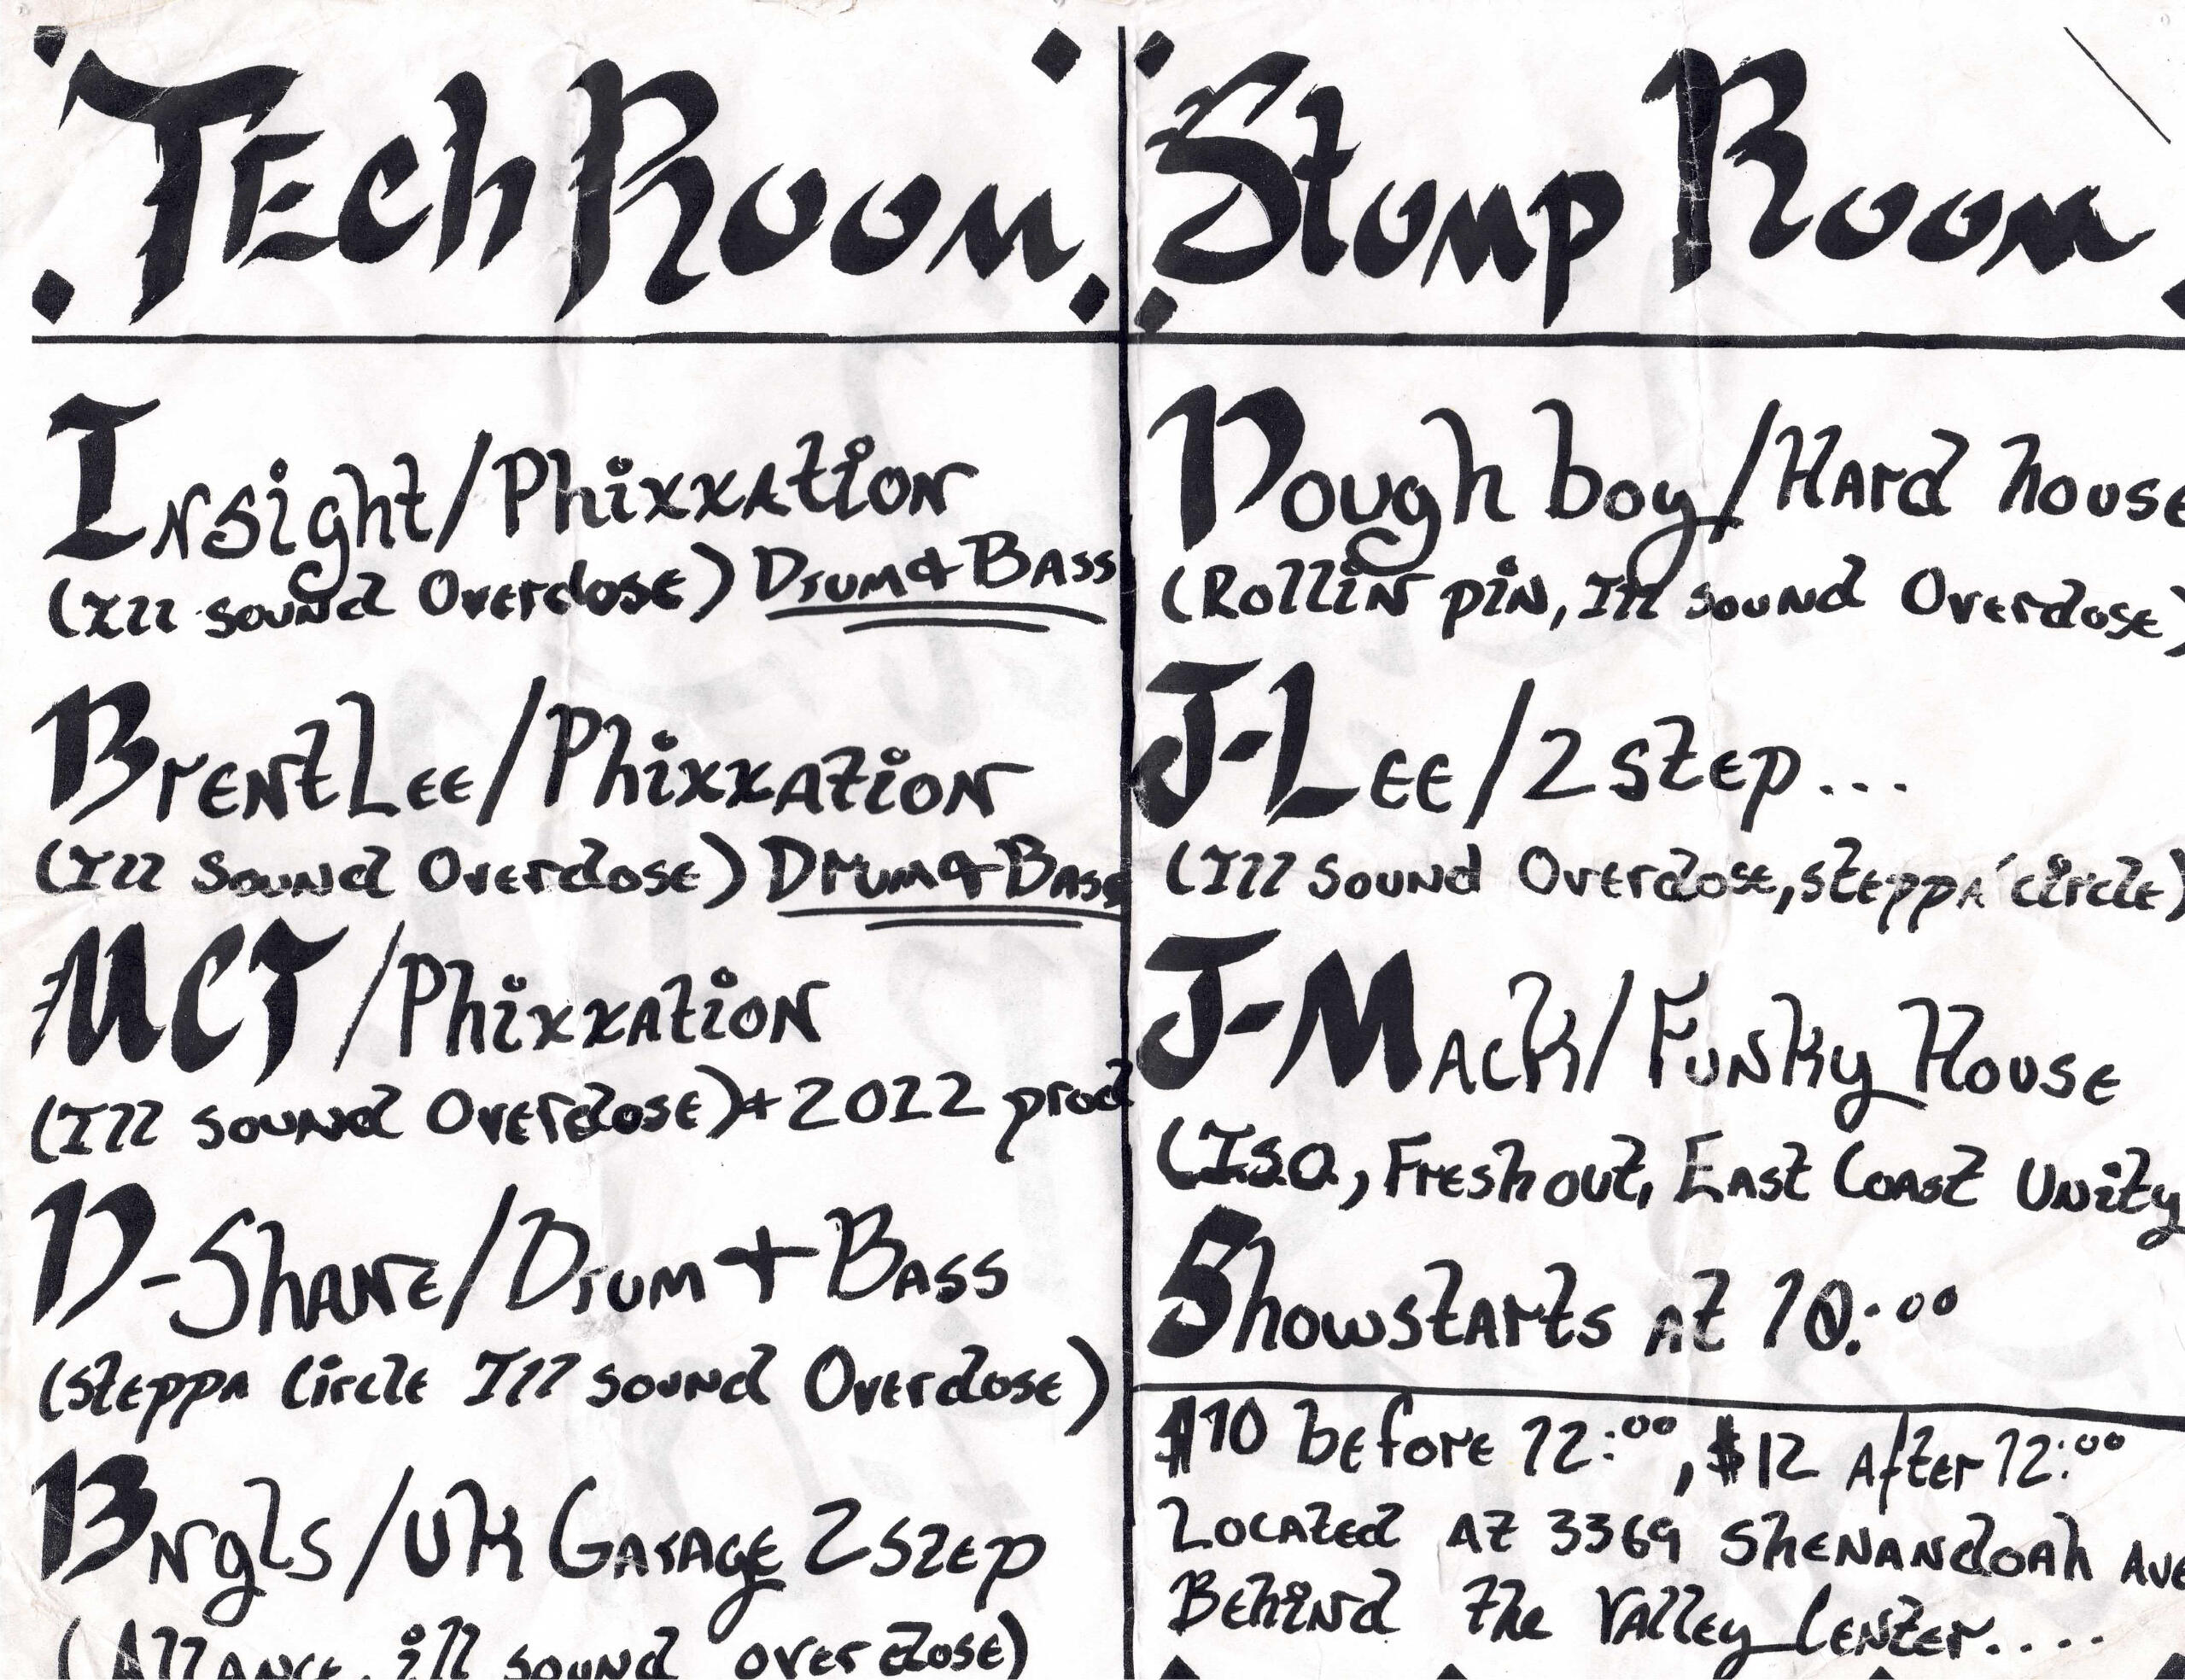 TEch Room
Insight/Phixxation
(Ill sound Overdose) Drum & Bass
Brent Lee/Phixxation
(Ill Sound Overdose) Drum & Bass
MCT/Phixxation
(Ill sound Overdose) + 2012 prod
D-Shane/Drum + Bass
(Steppa Circle Ill sound Overdose)
Bngls/UK Garage 2 step
ill sound over dose)
Stomp Room
Dough boy/Hard house
(Rollin pin, Ill sound Overdose)
J-Lee/2 step...
(Ill Sound Overdose, steppa' circle)
J-Mack/Funky House
(I.S.O., Fresh out, East Coast Unity
Show starts at 10:00
$10 before 12:00, $12 After 12:00
Located at 3369 Shenandoah Ave
Behind the Valley Center....